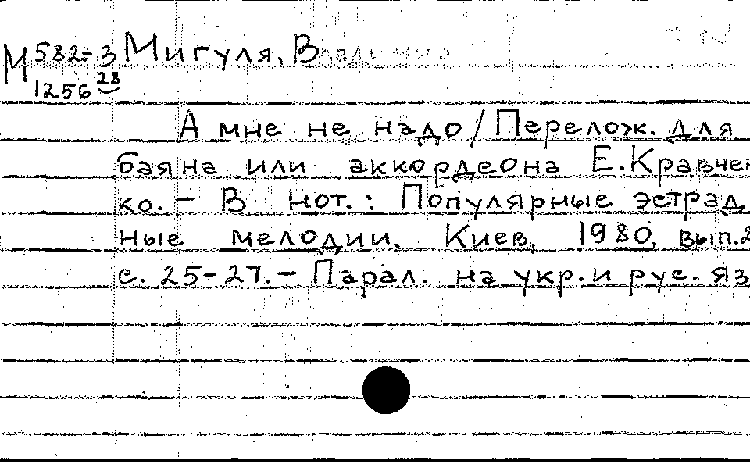 М 582-3 Мигуля, В
1256 28
А мне не надо / Перелож. для
баяна или аккордеона Е. Кравчен
ко. - В нот.: Популярные эстрад
ные мелодии. Киев, 1980, вып. 2
с. 25-27. - Парал. на укр. и рус. яз